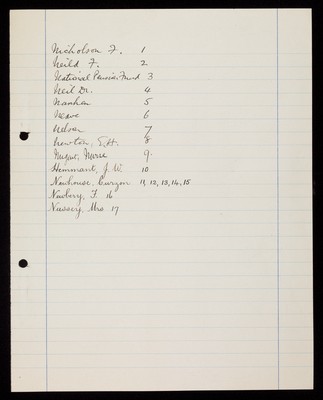 Nicholson F. 1
Neild F. 2
National Pension Fund 3
Neil Dr. 4
5
Neave 6
Nelson 7
Newton, E.H. 8
Nurse 9.
Hemmant, J. W. 10
Newhouse, Curzon 11, 12, 13, 14, 15
Newbery, F. 16
Mrs 17